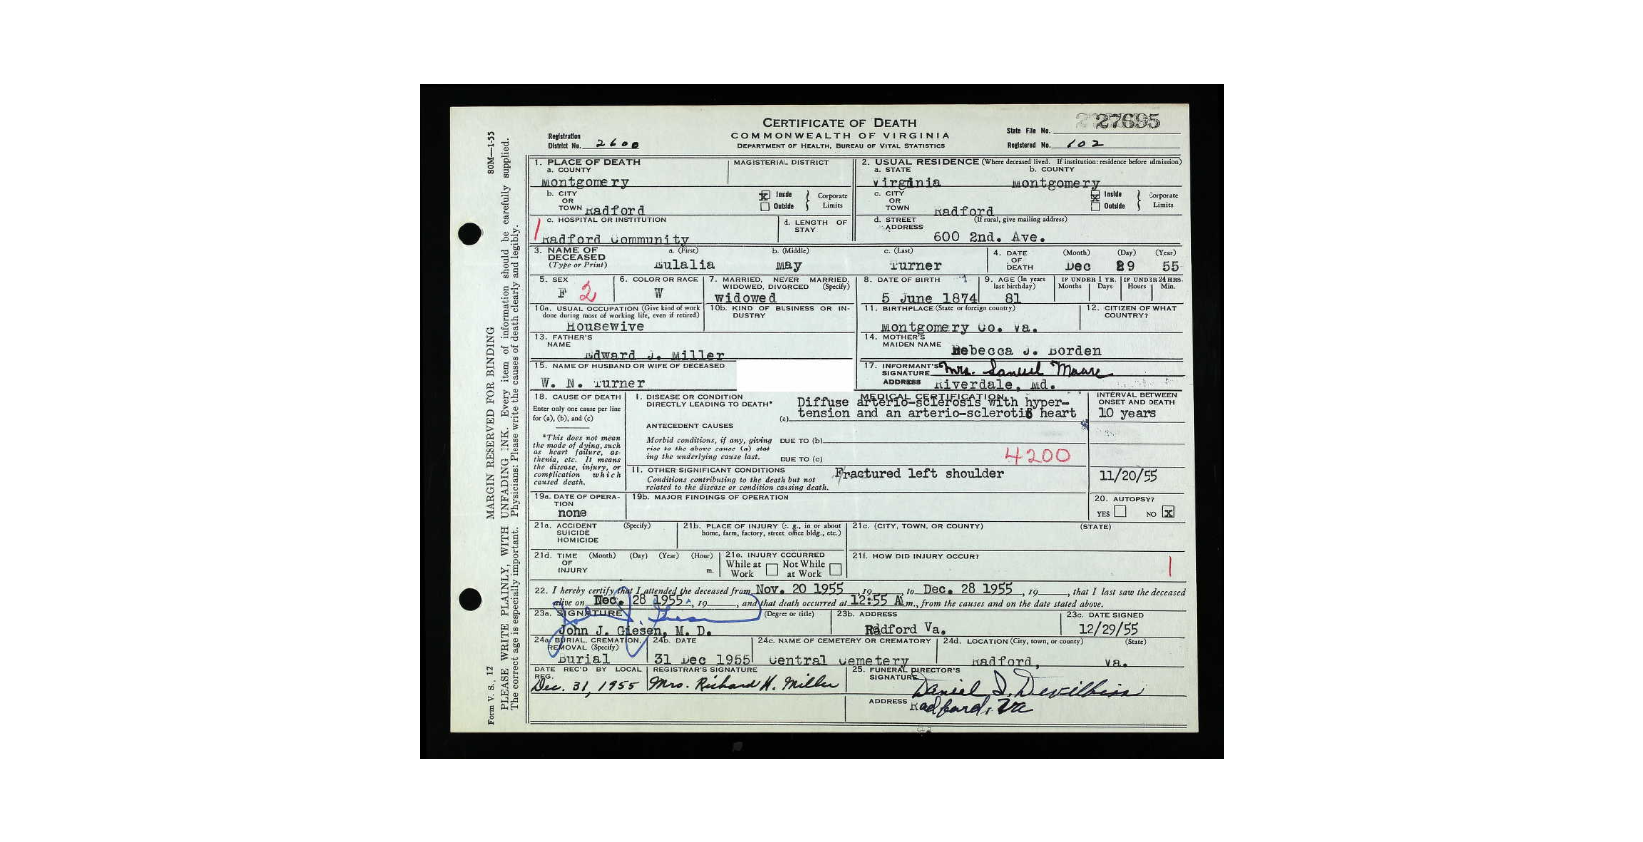 CERTIFICATE OF DEATH
COMMONWEALTH OF VIRGINIA
DEPARTMENT OF HEALTH, BUREAU OF VITAL STATISTICS
Registration District No. 2600
State File No. 27695
Registered No. 102
80M—1-55
MARGIN RESERVED FOR BINDING
PLEASE WRITE PLAINLY, WITH UNFADING INK. Every item of information should be carefully supplied.
The correct age is especially important. Physicians: Please write the causes of death clearly and legibly.
Form V. S., 12
1. PLACE OF DEATH
a. COUNTY
MAGISTERIAL DISTRICT
Montgomery
b. CITY OR TOWN Radford
Inside Outside Corporate Limits
c. HOSPITAL OR INSTITUTION
Radford Community
d. LENGTH OF STAY
2. USUAL RESIDENCE (Where deceased lived. If institution: residence before admission)
a. STATE b. COUNTY
Virginia Montgomery
c. CITY OR TOWN Radford
Inside Outside Corporate Limits
d. STREET ADDRESS (If rural, give mailing address)
600 2nd. Ave.
3. NAME OF DECEASED (Type or Print)
a. (First) b. (Middle) c. (Last)
Eulalia May Turner
4. DATE OF DEATH (Month) (Day) (Year)
Dec 29 55
5. SEX
F 2
6. COLOR OR RACE
W
7. MARRIED, NEVER MARRIED, WIDOWED, DIVORCED (Specify)
Widowed
8. DATE OF BIRTH
5 June 1874
9. AGE (In years last birthday)
81
IF UNDER 1 YR. Months Days
IF UNDER 24 HRS. Hours Min.
10a. USUAL OCCUPATION (Give kind of work done during most of working life, even if retired)
Housewive
10b. KIND OF BUSINESS OR INDUSTRY
11. BIRTHPLACE (State or foreign country)
Montgomery Co. Va.
12. CITIZEN OF WHAT COUNTRY?
13. FATHER'S NAME
Edward J. Miller
14. MOTHER'S MAIDEN NAME Rebecca J. Borden
15. NAME OF HUSBAND OR WIFE OF DECEASED
W. N. Turner
17. INFORMANT'S SIGNATURE Mrs. Samuel Moore
ADDRESS Riverdale, Md.
18. CAUSE OF DEATH
Enter only one cause per line for (a), (b), and (c)
*This does not mean the mode of dying, such as heart failure, asthenia, etc. It means the disease, injury, or complication which caused death.
MEDICAL CERTIFICATION
I. DISEASE OR CONDITION DIRECTLY LEADING TO DEATH*
(a) Diffuse arterio-sclerosis with hyper-
tension and an arterio-sclerotic heart
INTERVAL BETWEEN ONSET AND DEATH
10 years
ANTECEDENT CAUSES
Morbid conditions, if any, giving rise to the above cause (a) stating the underlying cause last.
DUE TO (b)
DUE TO (c)
4200
II. OTHER SIGNIFICANT CONDITIONS
Conditions contributing to the death but not related to the disease or condition causing death.
Fractured left shoulder
11/20/55
19a. DATE OF OPERATION
none
19b. MAJOR FINDINGS OF OPERATION
20. AUTOPSY?
YES NO X
21a. ACCIDENT SUICIDE HOMICIDE (Specify)
21b. PLACE OF INJURY (e. g., in or about home, farm, factory, street, office bldg., etc.)
21c. (CITY, TOWN, OR COUNTY) (STATE)
21d. TIME OF INJURY (Month) (Day) (Year) (Hour) m.
21e. INJURY OCCURRED
While at Work Not While at Work
21f. HOW DID INJURY OCCUR?
22. I hereby certify that I attended the deceased from Nov. 20 1955, 19 to Dec. 28 1955, 19, that I last saw the deceased
alive on Dec. 28 1955, 19, and that death occurred at 12:55 A m., from the causes and on the date stated above.
23a. SIGNATURE (Degree or title)
John J. Giesen, M. D.
23b. ADDRESS
Radford Va.
23c. DATE SIGNED
12/29/55
24a. BURIAL, CREMATION, REMOVAL (Specify)
Burial
24b. DATE
31 Dec 1955
24c. NAME OF CEMETERY OR CREMATORY
Central Cemetery
24d. LOCATION (City, town, or county) (State)
Radford, Va.
DATE REC'D BY LOCAL REG.
Dec. 31, 1955
REGISTRAR'S SIGNATURE
Mrs. Richard H. Miller
25. FUNERAL DIRECTOR'S SIGNATURE
Daniel D. Devilbiss
ADDRESS Radford, Va